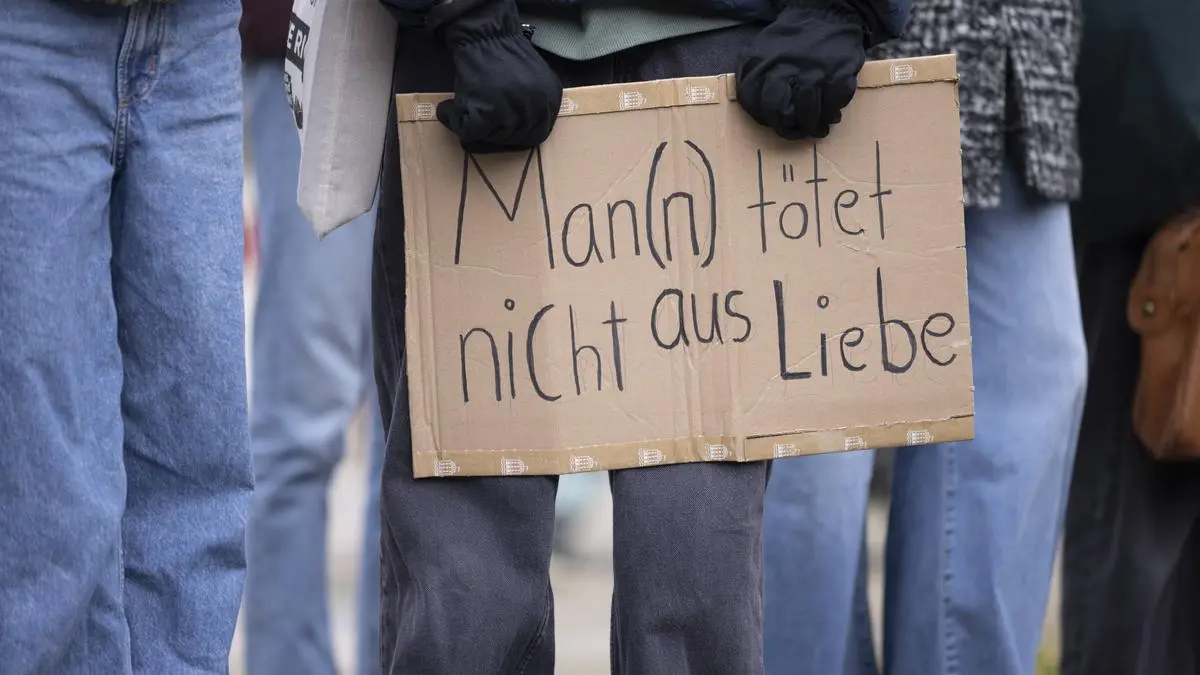 E RI
Man(n) tötet
nicht aus Liebe